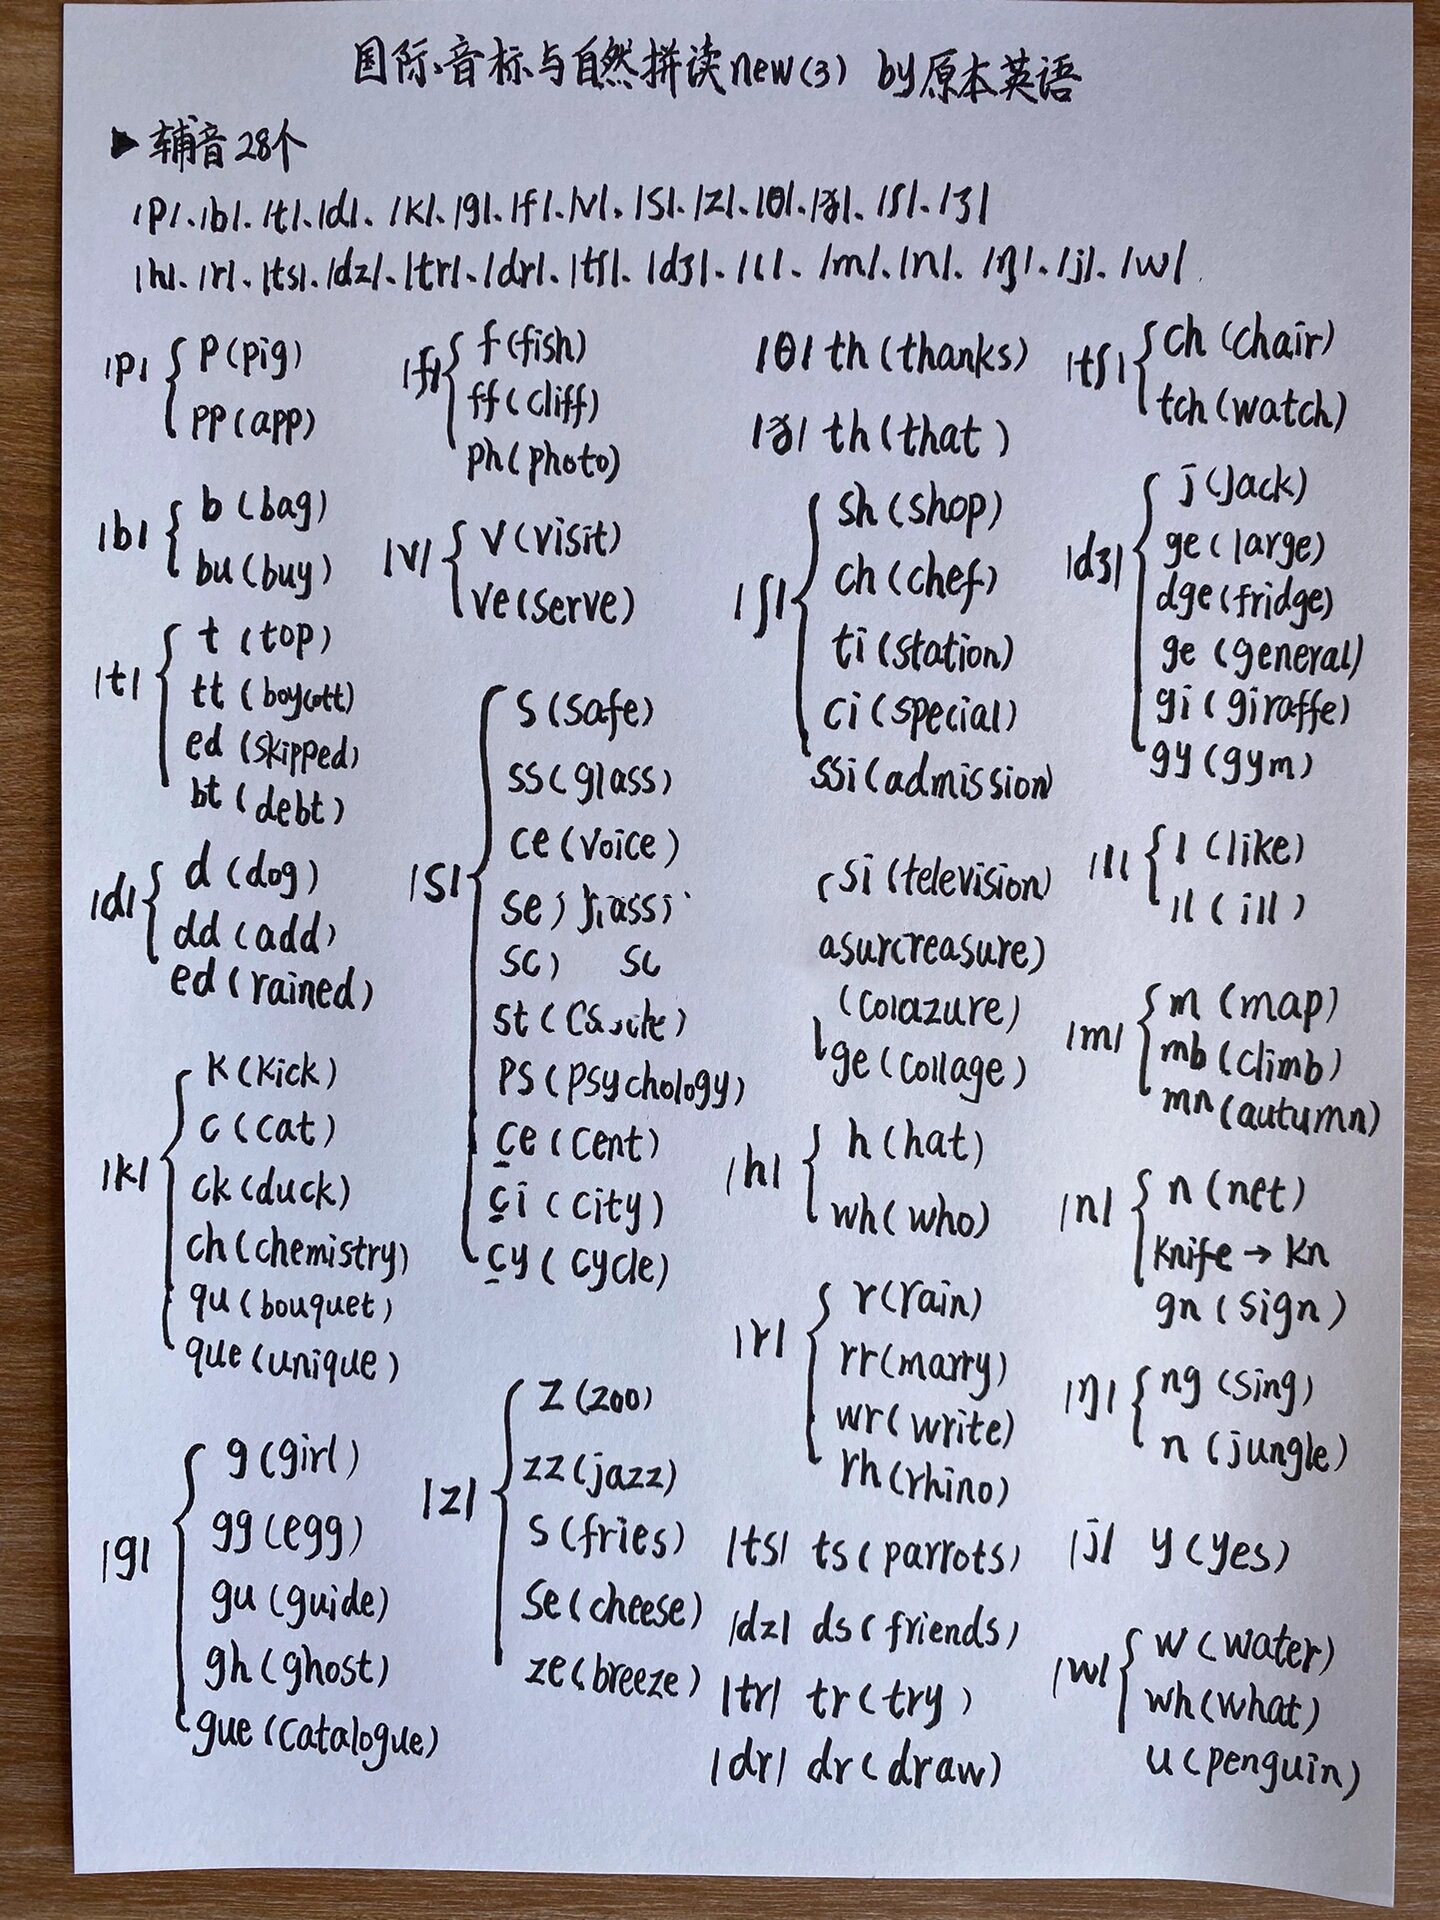 国际音标与自然拼读new(3) by原本英语
▶辅音28个
/p/、/b/、/t/、/d/、/k/、/g/、/f/、/v/、/s/、/z/、/θ/、/ð/、/ʃ/、/ʒ/
/h/、/r/、/ts/、/dz/、/tr/、/dr/、/tʃ/、/dʒ/、/l/、/m/、/n/、/ŋ/、/j/、/w/
/p/
p (pig)
pp (app)
/b/
b (bag)
bu (buy)
/t/
t (top)
tt (boycott)
ed (skipped)
bt (debt)
/d/
d (dog)
dd (add)
ed (rained)
/k/
k (kick)
c (cat)
ck (duck)
ch (chemistry)
qu (bouquet)
que (unique)
/g/
g (girl)
gg (egg)
gu (guide)
gh (ghost)
gue (catalogue)
/f/
f (fish)
ff (cliff)
ph (photo)
/v/
v (visit)
ve (serve)
/s/
s (safe)
ss (glass)
ce (voice)
se
sc sc
st
ps (psychology)
ce (cent)
ci (city)
cy (cycle)
/z/
z (zoo)
zz (jazz)
s (fries)
se (cheese)
ze (breeze)
/θ/ th (thanks)
/ð/ th (that)
/ʃ/
sh (shop)
ch (chef)
ti (station)
ci (special)
ssi (admission)
si (television)
asurcreasure)
(colazure)
ge (collage)
/h/
h (hat)
wh (who)
/r/
r (rain)
rr (marry)
wr (write)
rh (rhino)
/ts/ ts (parrots)
/dz/ ds (friends)
/tr/ tr (try)
/dr/ dr (draw)
/tʃ/
ch (chair)
tch (watch)
/dʒ/
j (Jack)
ge (large)
dge (fridge)
ge (general)
gi (giraffe)
gy (gym)
/l/
l (like)
ll (ill)
/m/
m (map)
mb (climb)
mn (autumn)
/n/
n (net)
knife → kn
gn (sign)
/ŋ/
ng (sing)
n (jungle)
/j/ y (yes)
/w/
w (water)
wh (what)
u (penguin)